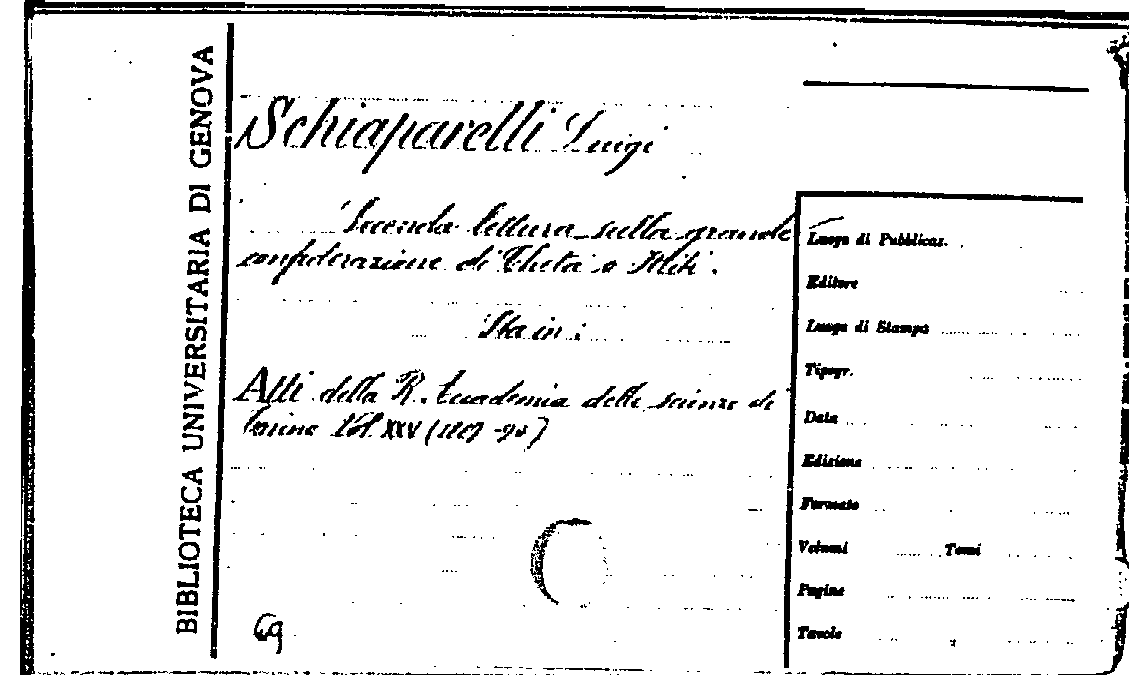 BIBLIOTECA UNIVERSITARIA DI GENOVA
Schiaparelli Luigi
Seconda lettura sulla grande
confederazione di Cheta o Hiti.
Sta in:
Atti della R. Accademia delle scienze di
Torino Vol. XXV (1889-90)
Luogo di Pubblicaz.
Editore
Luogo di Stampa
Tipogr.
Data
Edizione
Formato
Volumi Tomi
Pagine
Tavole
69